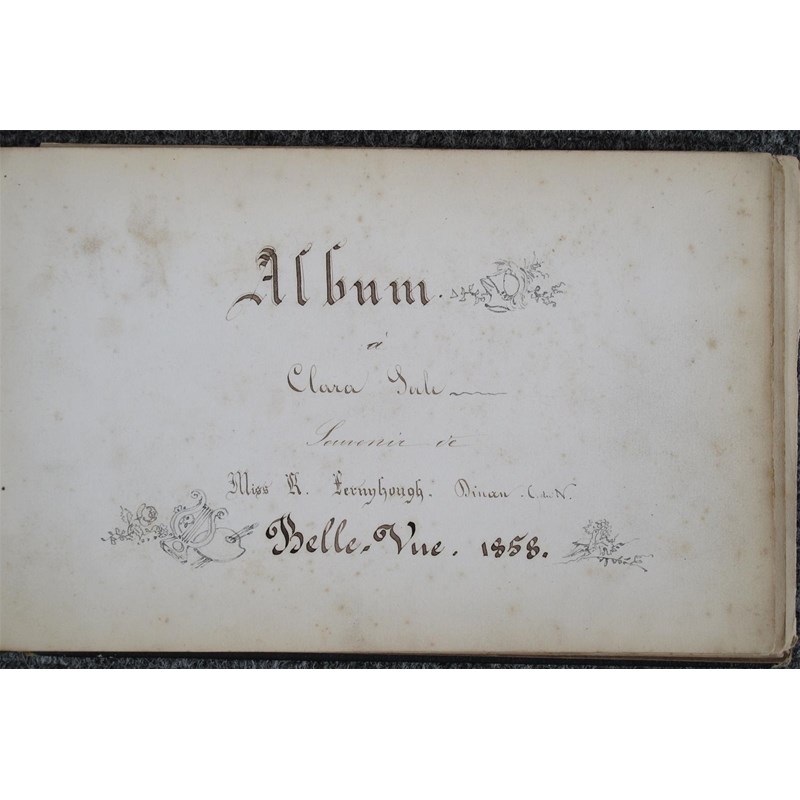 Album.
à
Clara Sale
Souvenir de
Miss R. Fernyhough. Dinan. C. d. N.
Belle-Vue. 1858.